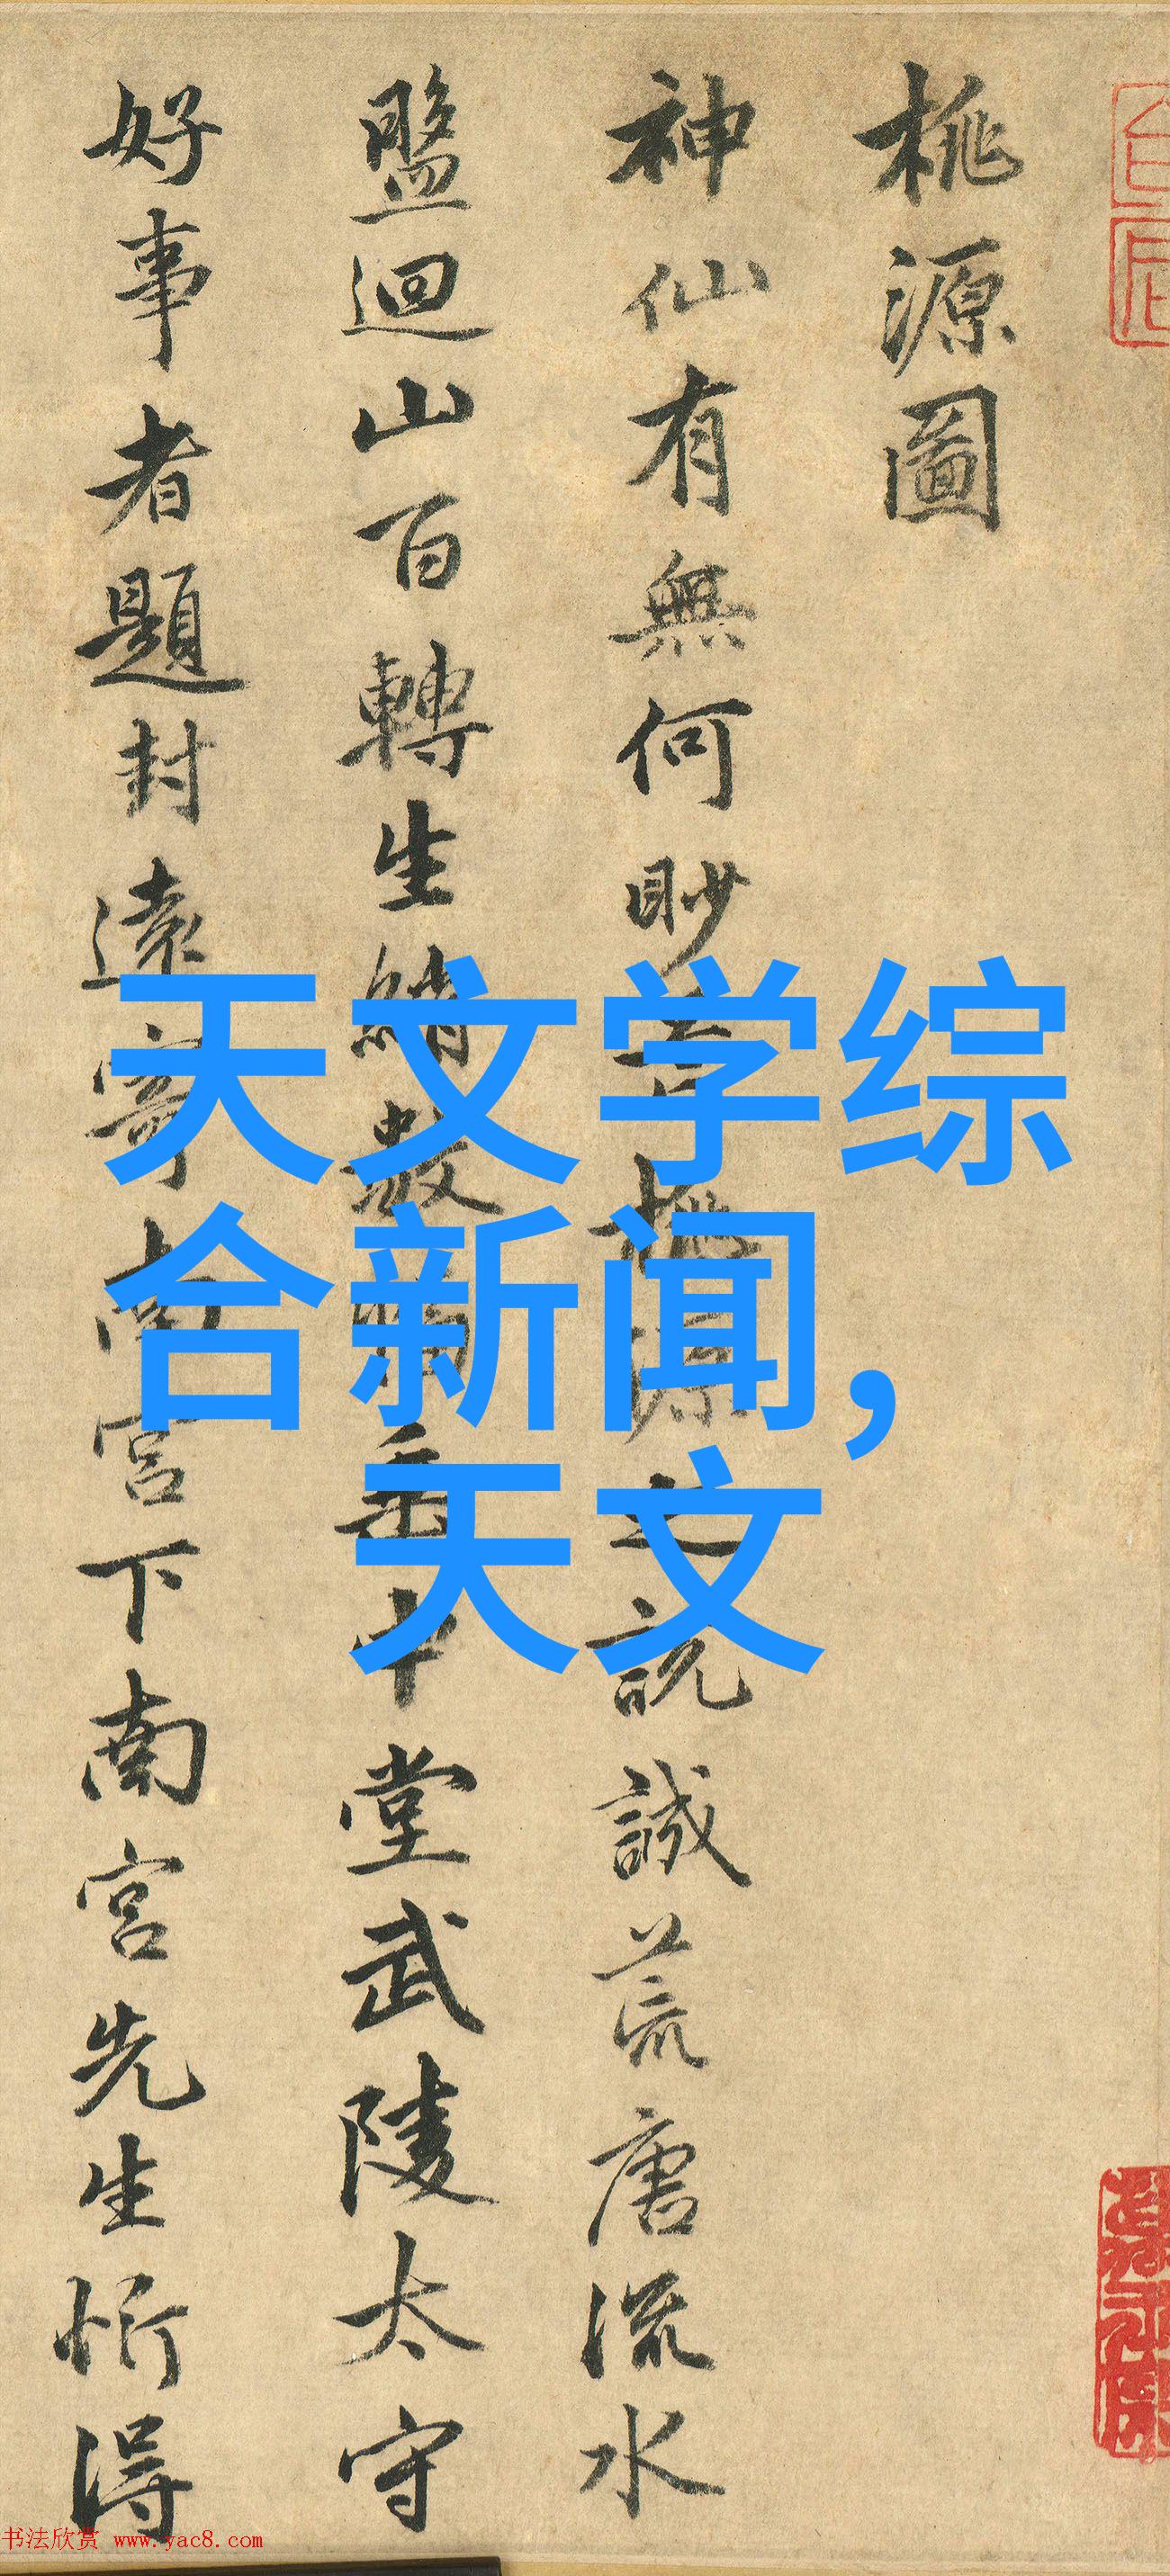 桃源圖
神仙有無何眇芒桃源之說誠荒唐流水
盤迴山百轉生綃數幅垂中堂武陵太守
好事者題封遠寄南宮下南宮先生忻得
天文学综
合新闻,
天文
书法欣赏 www.yac8.com